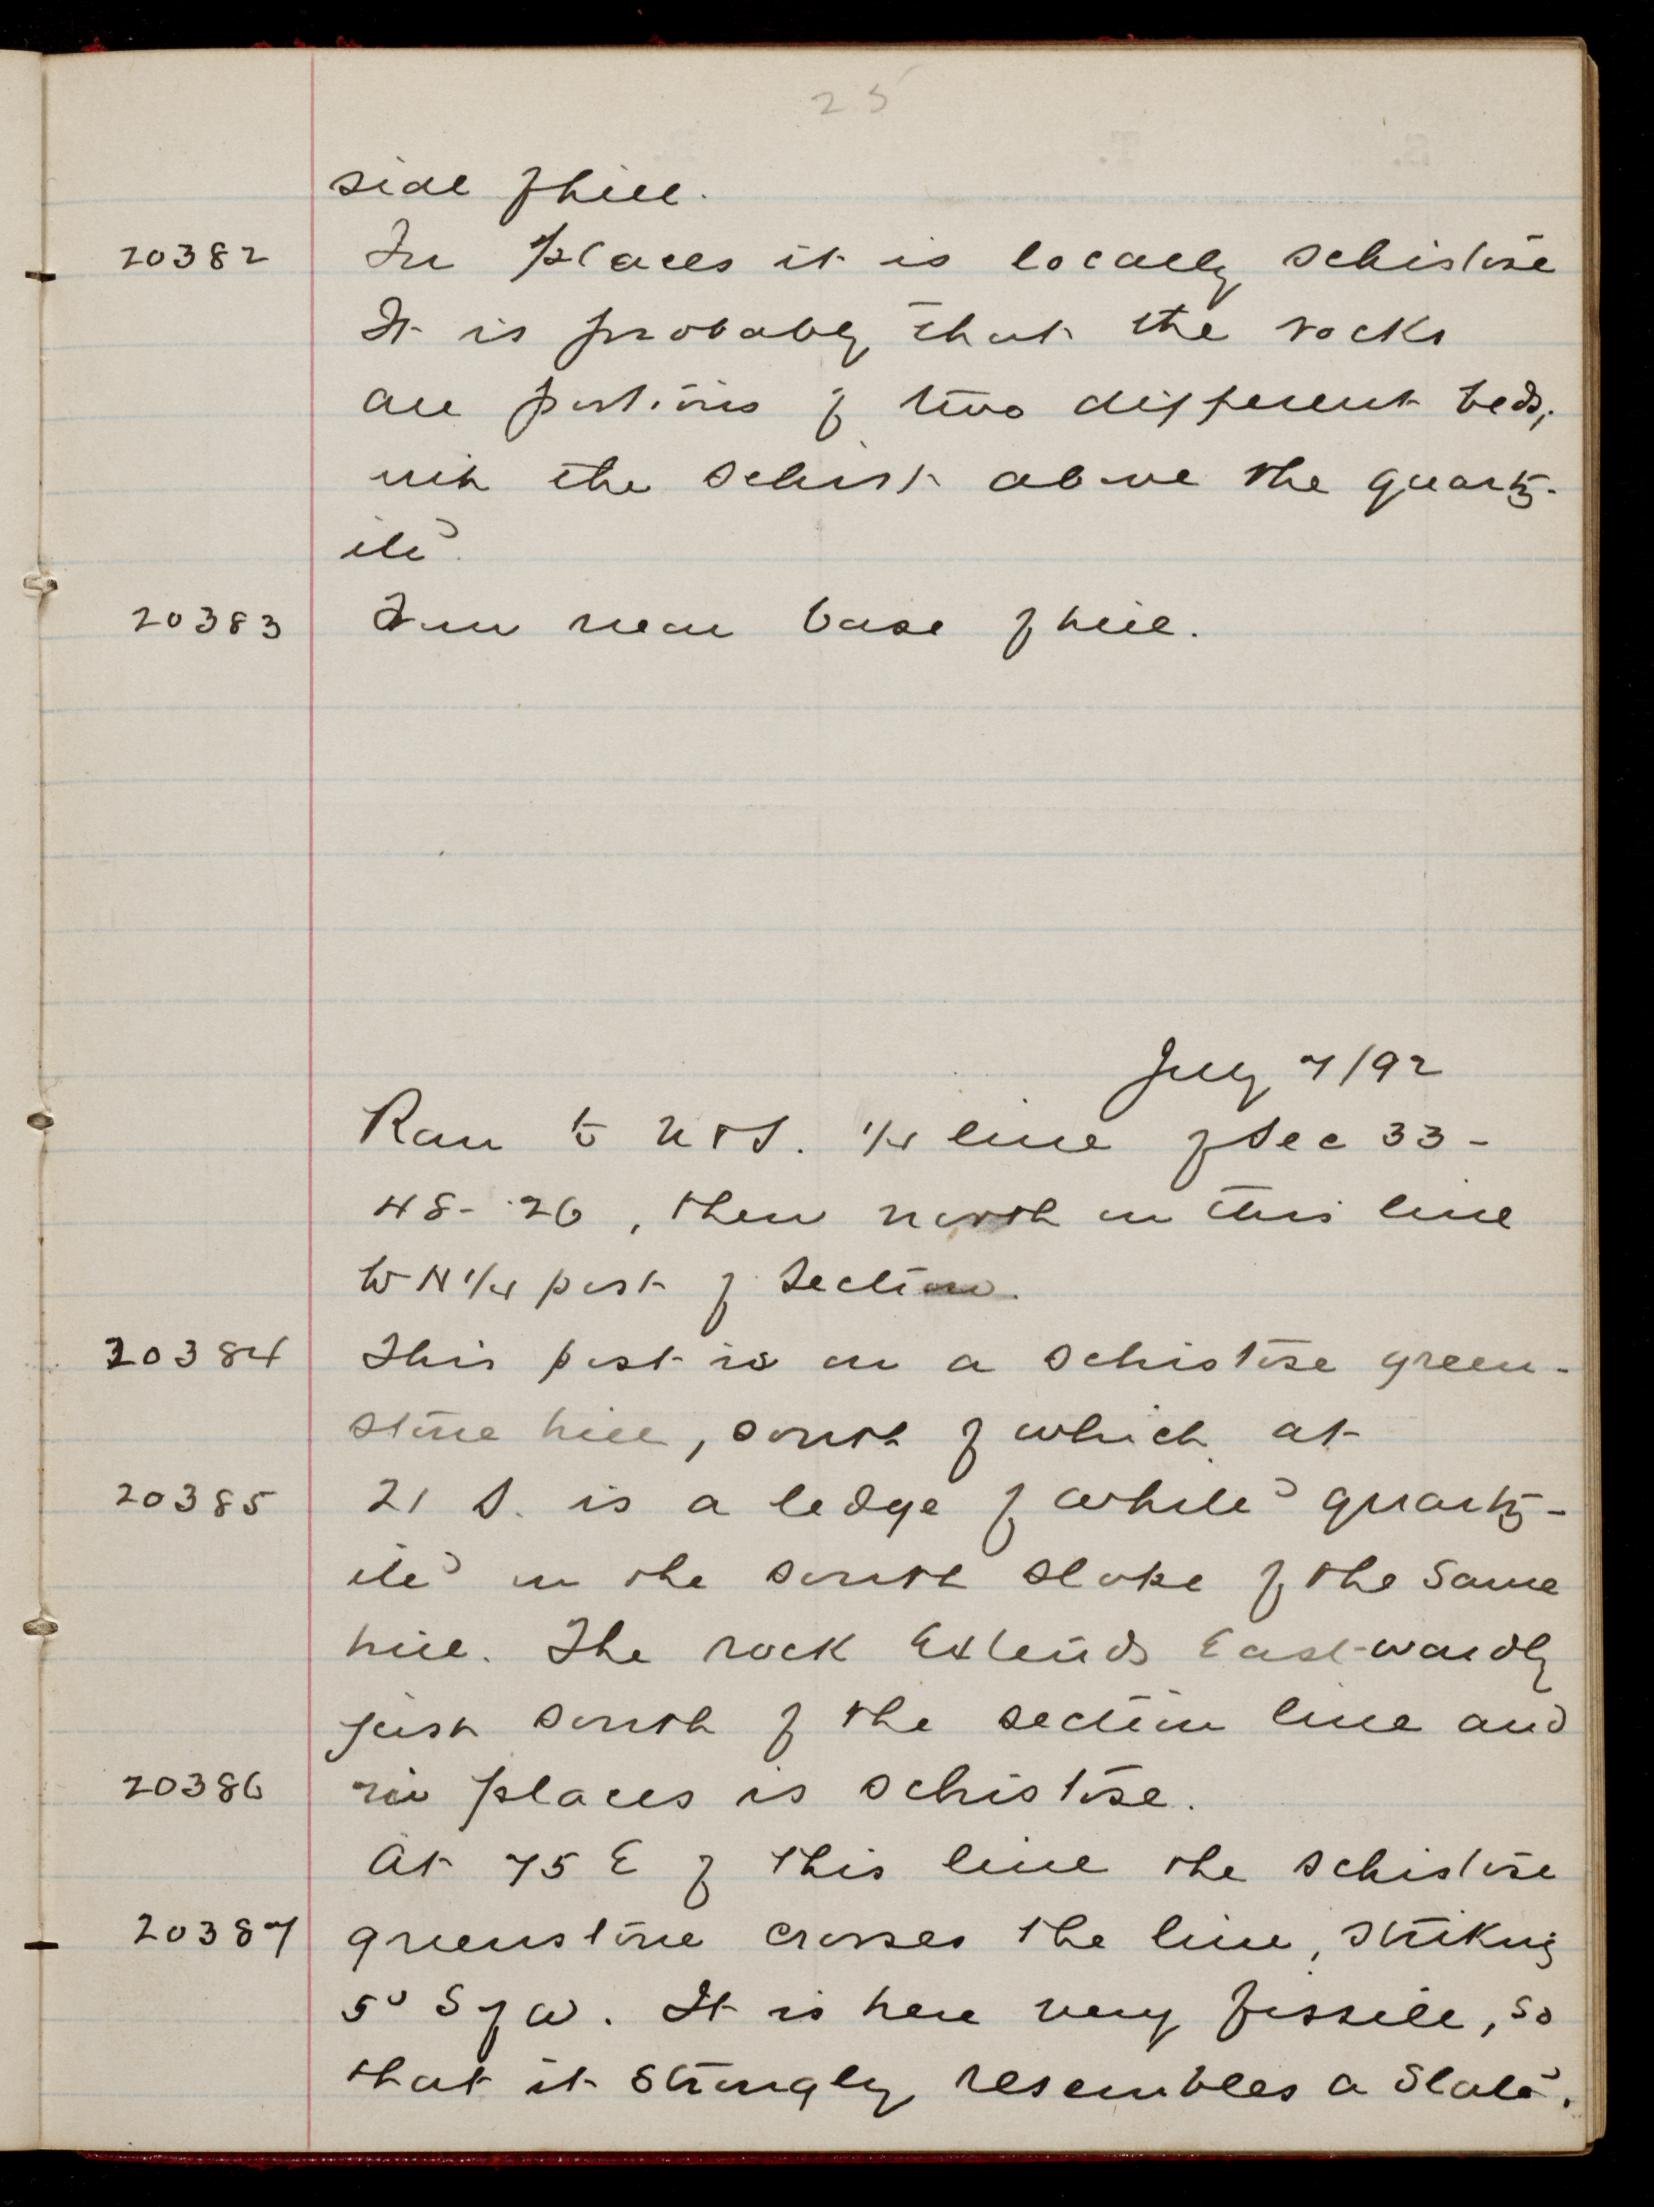 25
side of hill.
20382 In places it is locally schistose
It is probably that the rocks
are portions of two different beds,
with the schist above the quartz-
ite
20383 From near base of hill.
July 7/92
Ran to N & S. 1/4 line of Sec 33-
48-26, then north on this line
to N 1/4 post of Section.
20384 This post is on a schistose green-
stone hill, south of which at
20385 21 S. is a ledge of white quartz-
ite on the south slope of the same
hill. The rock Extends Eastwardly
just south of the section line and
20386 in places is schistose.
At 75 E of this line the schistose
20387 greenstone crosses the line, striking
5° S of W. It is here very fissile, so
that it strongly resembles a slate.